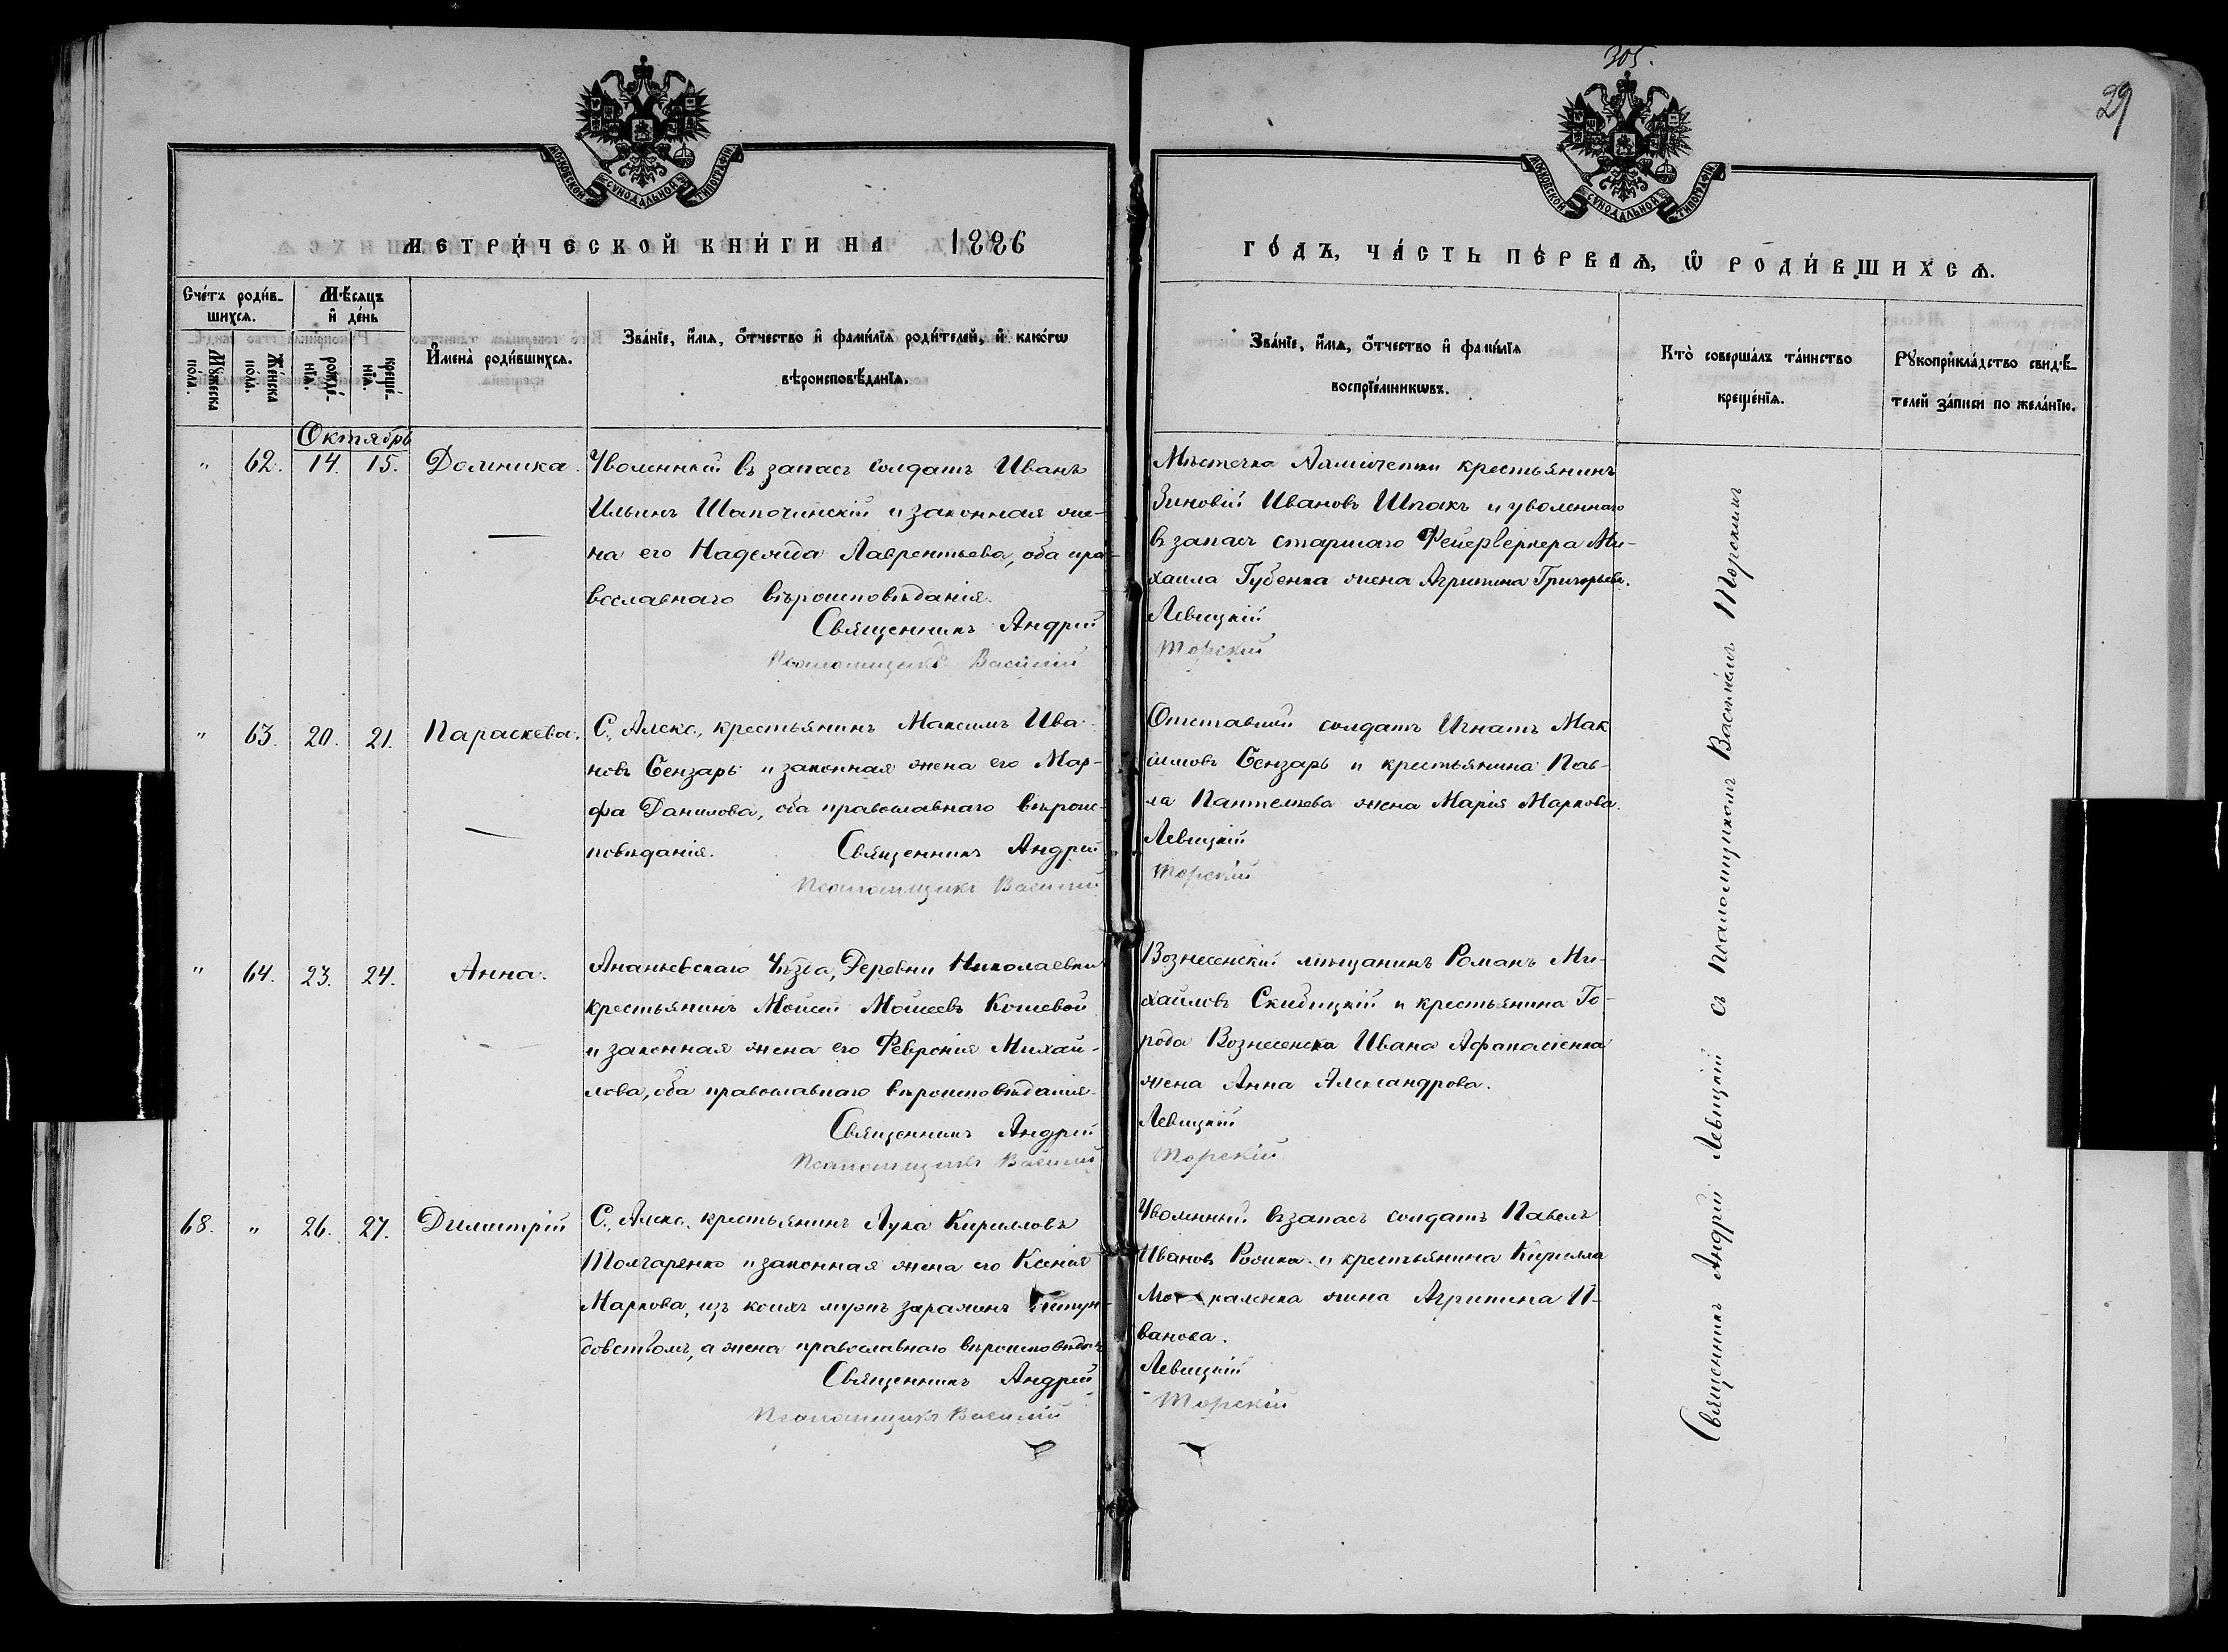 305.
29
МОСКОВСКОЙ СѴНОДАЛЬНОЙ ТИПОГРАФІИ.
МОСКОВСКОЙ СѴНОДАЛЬНОЙ ТИПОГРАФІИ.
МЕТРИ́ЧЕСКОЙ КНИ́ГИ НА 1886
ГО́ДЪ, ЧА́СТЬ ПЕ́РВАѦ, Ѽ РОДИ́ВШИХСѦ.
Сче́тъ роди́вшихсѧ.
Мꙋ́жеска по́ла.
Же́нска по́ла.
Мѣ́сѧцъ и҆ де́нь
рожде́нїѧ.
креще́нїѧ.
И҆мена̀ роди́вшихсѧ.
Зва́нїе, и҆́мѧ, ѻ҆́тчество и҆ фами́лїѧ роди́телей, и҆ како́гѡ
вѣроисповѣ́данїѧ.
Зва́нїе, и҆́мѧ, ѻ҆́тчество и҆ фами́лїѧ
воспрїе́мникѡвъ.
Кто̀ соверша́лъ та́инство
креще́нїѧ.
Рꙋкоприкла́дство свидѣ́-
телей за́писи по жела́нїю.
Октябрь
" 62. 14. 15. Домника.
Уволенный въ запасъ солдатъ Иванъ
Ильинъ Шапочинскій и законная же-
на его Надежда Лаврентьева, оба пра-
вославнаго вѣроисповѣданія.
Священникъ Андрей
Псаломщикъ Василій
Мѣстечка крестьянинъ
Зиновій Ивановъ Шпакъ и уволеннаго
въ запасъ старшаго Фейерверкера Ми-
хаила Губенка жена Агрипина Григорьева.
Левицкій
Торскій
" 63. 20. 21. Параскева.
С. Алекс., крестьянинъ Максимъ Ива-
новъ Бензарь и законная жена его Мар-
фа Данилова, оба православнаго вѣроис-
повѣданія. Священникъ Андрей
Псаломщикъ Василій
Отставный солдатъ Игнатъ Мак
симовъ Бензарь и крестьянина Пав-
ла Пантелеева жена Марія Маркова.
Левицкій
Торскій
" 64. 23. 24. Анна.
Ананьевскаго Уѣзда, Деревни Николаевки
крестьянинъ Моисей Моисеевъ Кошевой
и законная жена его Феврония Михай-
лова, оба православнаго вѣроисповѣданія.
Священникъ Андрей
Псаломщикъ Василій
Вознесенскій мѣщанинъ Романъ Ми-
хайловъ Скибицкій и крестьянина Го-
рода Вознесенска Ивана Афанасіенка
жена Анна Александрова.
Левицкій
Торскій
68. " 26. 27. Димитрій
С. Алекс. крестьянинъ Лука Кирилловъ
Толчаренко и законная жена его Ксенія
Маркова, изъ коихъ мужъ зараженъ штун-
довствомъ, а жена православнаго вѣроисповѣдан.
Священникъ Андрей
Псаломщикъ Василій
Уволенный въ запасъ солдатъ Павелъ
Ивановъ и крестьянина Кирилла
жена Агрипина И-
ванова.
Левицкій
Торскій
Священникъ Андрей Левицкій съ Псаломщикомъ Василіемъ Торскимъ